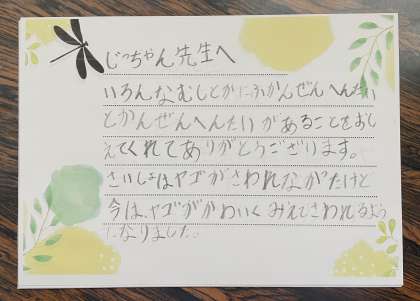 じっちゃん先生へ
いろんなむしとかにふかんぜんへんたい
とかんぜんへんたいがあることをおし
えてくれてありがとうございます。
さいしょはヤゴがさわれなかたけど
今は、ヤゴががかわいくみえてさわれるよう
になりました。